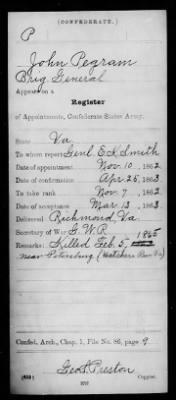 (CONFEDERATE.)
P
John Pegram
Brig. General
Appears on a
Register
of Appointments, Confederate States Army.
State Va
To whom report Genl. E.K. Smith
Date of appointment Nov. 10, 1862
Date of confirmation Apr. 25, 1863
To take rank Nov. 7, 1862
Date of acceptance Mar. 13, 1863
Delivered Richmond, Va
Secretary of War G.W.R.
Remarks: Killed Feb 5, 1865
near Petersburg (Hatchers Run Va)
Confed. Arch., Chap. 1, File No. 86, page 9
Geo. S. Preston
Copyist.